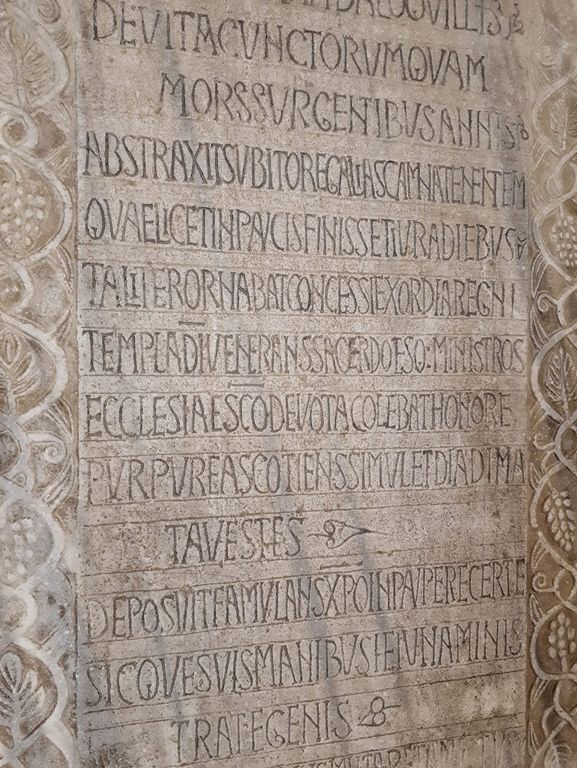 DEVITACVNCTORVMQVAM
MORSSVRGENTIBUSANNIS
ABSTRAXITSVBITOREGALIASCAMNATENENTEM
QVAELICETINPAVCISFINISSETIVRADIEBVS
TALITERORNABATCONCESSIEXORDIAREGNI
TEMPLADIVENERANSSACERDOESQ:MINISTROS
ECCLESIAESCODEVOTACOLEBATHONORE
PVRPVREASCOTIENSSIMVLETDIADIMA
TAVESTES
DEPOSVITFAMVLANSXPOINPAVPERECERTE
SICQVESVISMANIBUSIEIVNAMINIS
TRATEGENIS